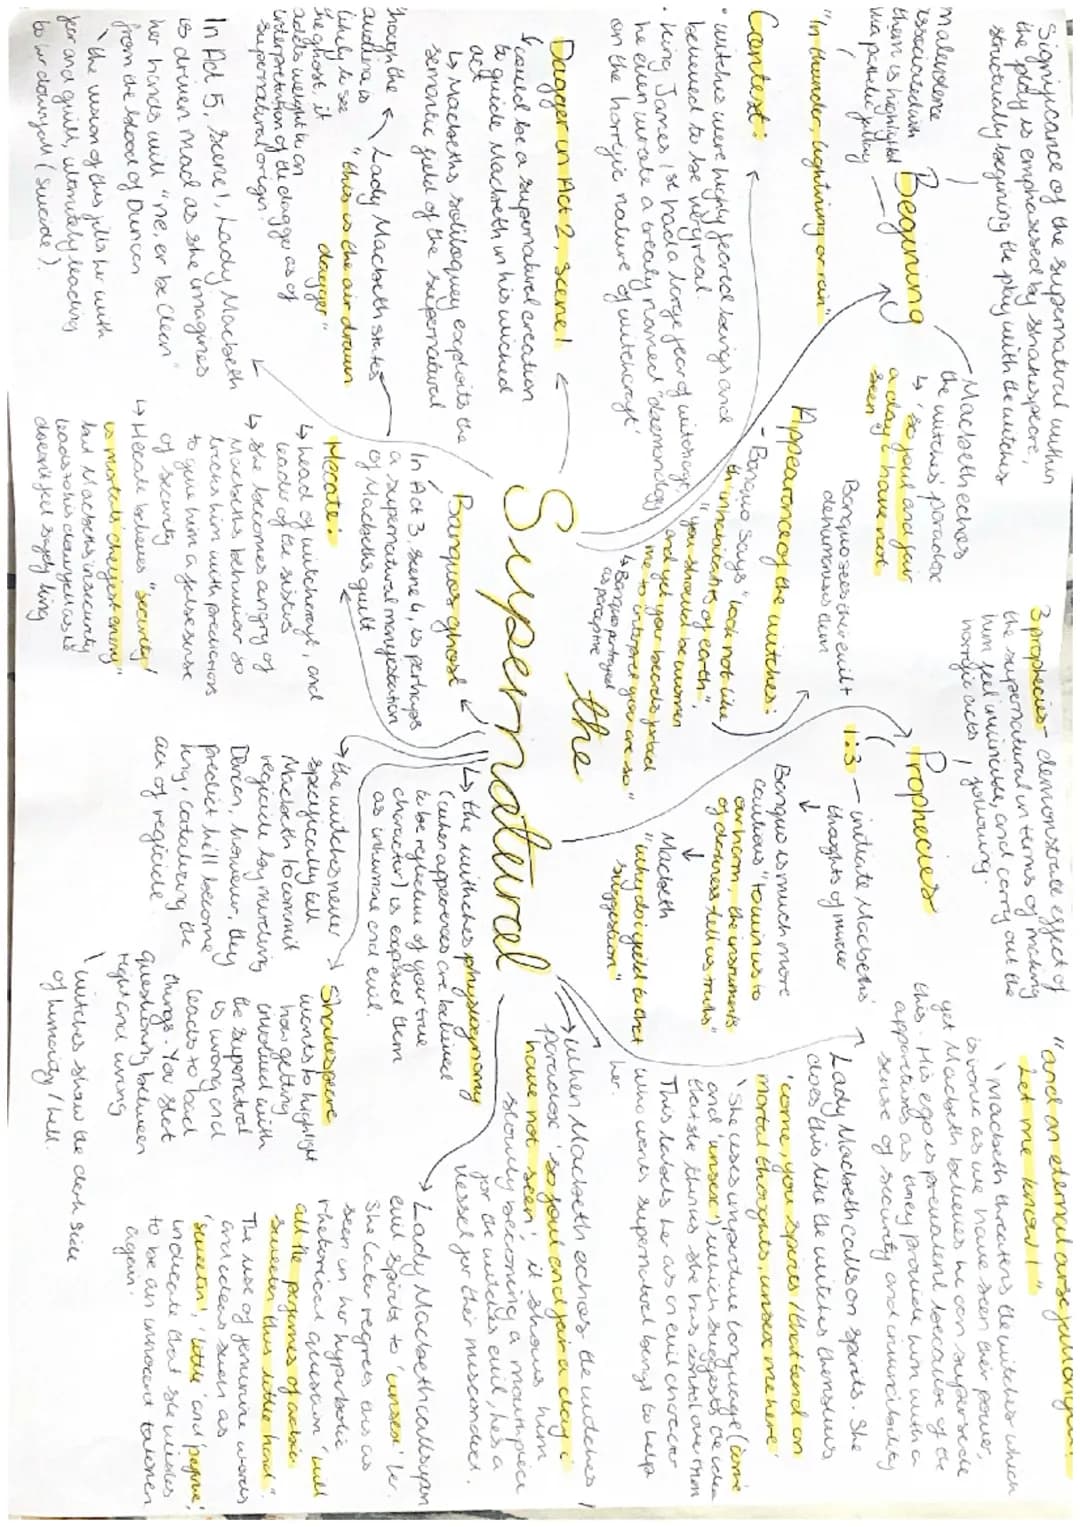 Significance of the supernatural within
the play is emphasised by Shakespeare,
structurally begining the play with the witches
Begining
malevolence
associated with
them is highlighted
via pathetic fallacy
"In thunder, lightning or rain"
Macbeth echoes
the witches' paradox
↳ 'so foul and fair
a day I have not
seen'
Context:
• witches were highly feared beings and
believed to be very real.
• King James 1st had a large fear of witches,
he even wrote a treaty named "deamonology"
on the horrific nature of witchcraft
Appearance of the witches:
Banquo sees their evil +
dehumanises them
- Banquo says "look not like
th'inhabitants of earth",
"you should be women
and yet your beards forbid
me to interpret you are so"
↳ Banquo portrayed
as perceptive
Prophecies
3 prophecies - demonstrate effect of
the supernatural in terms of making
him feel invincible, and carry out the
horrific acts following.
1:3 - initiate Macbeth's
thoughts of murder
Banquo is much more
cautious "to win us to
our harm, the instruments
of darkness tell us truths"
Macbeth
"why do i yield to that
suggestion"
"and an eternal curse fall on you!
Let me know!"
Macbeth threatens the witches which
is ironic as we have seen their power,
yet Macbeth believes he can supersede
this. His ego is prevalent because of the
apparitions as they provide him with a
sense of security and invincibility
Lady Macbeth calls on spirits. She
does this like the witches themselves,
'come, you spirits / that tend on
mortal thoughts, unsex me here'
She uses imperative language ('come'
and 'unsex') which suggests the idea
that she thinks she has control over them
This labels her as an evil character
who wants supernatural beings to help
her.
the
Supernatural
Dagger in Act 2, scene 1
could be a supernatural creation
to guide Macbeth in his wicked
act
↳ Macbeth's soliloquy exploits the
semantic field of the supernatural
Lady Macbeth states
"this is the air drawn
dagger"
though the
audience is
unlikely to see
the ghost, it
adds weight to an
interpretation of the dagger as of
supernatural origin.
In Act 5, scene 1, Lady Macbeth
is driven mad as she imagines
her hands will "ne'er be clean"
from the blood of Duncan
the vision of this fills her with
fear and guilt, ultimately leading
to her downfall (suicide).
Banquo's ghost
In Act 3, scene 4, is perhaps
a supernatural manifestation
of Macbeth's guilt
Hecate:
↳ head of witchcraft, and
leader of the sisters
↳ She becomes angry of
Macbeth's behaviour so
tricks him with predictions
to give him a false sense
of security
↳ Hecate believes "security/
is mortals chiefest enemy"
but Macbeth's insecurity
leads to his downfall as he
doesn't feel safely king
↳ the witches physiognomy
(outer appearences are believed
to be reflective of your true
character) is exploited them
as inhumane and evil.
the witches never
specifically tell
Macbeth to commit
regicide by murdering
Duncan, however, they
predict he'll become
king, catalysing the
act of regicide
Shakespeare
wants to highlight
how getting
involved with
the supernatural
is wrong and
leads to bad
things. You start
questioning between
right and wrong
witches show the dark side
of humanity / hell.
When Macbeth echoes the witches
paradox 'so foul and fair a day i
have not seen', it shows him
slowly becoming a mouthpiece
for the witches evil, he's a
vessel for their misconduct.
Lady Macbeth calls upon
evil spirits to 'unsex' her.
She later regrets this as
seen in her hyperbolic
rhetorical question 'will
all the perfumes of arabia
sweeten this little hand'.
The use of feminine words
and ideas such as
'sweeten', 'little' and 'perfume',
indicate that she wishes
to be an innocent woman
again.